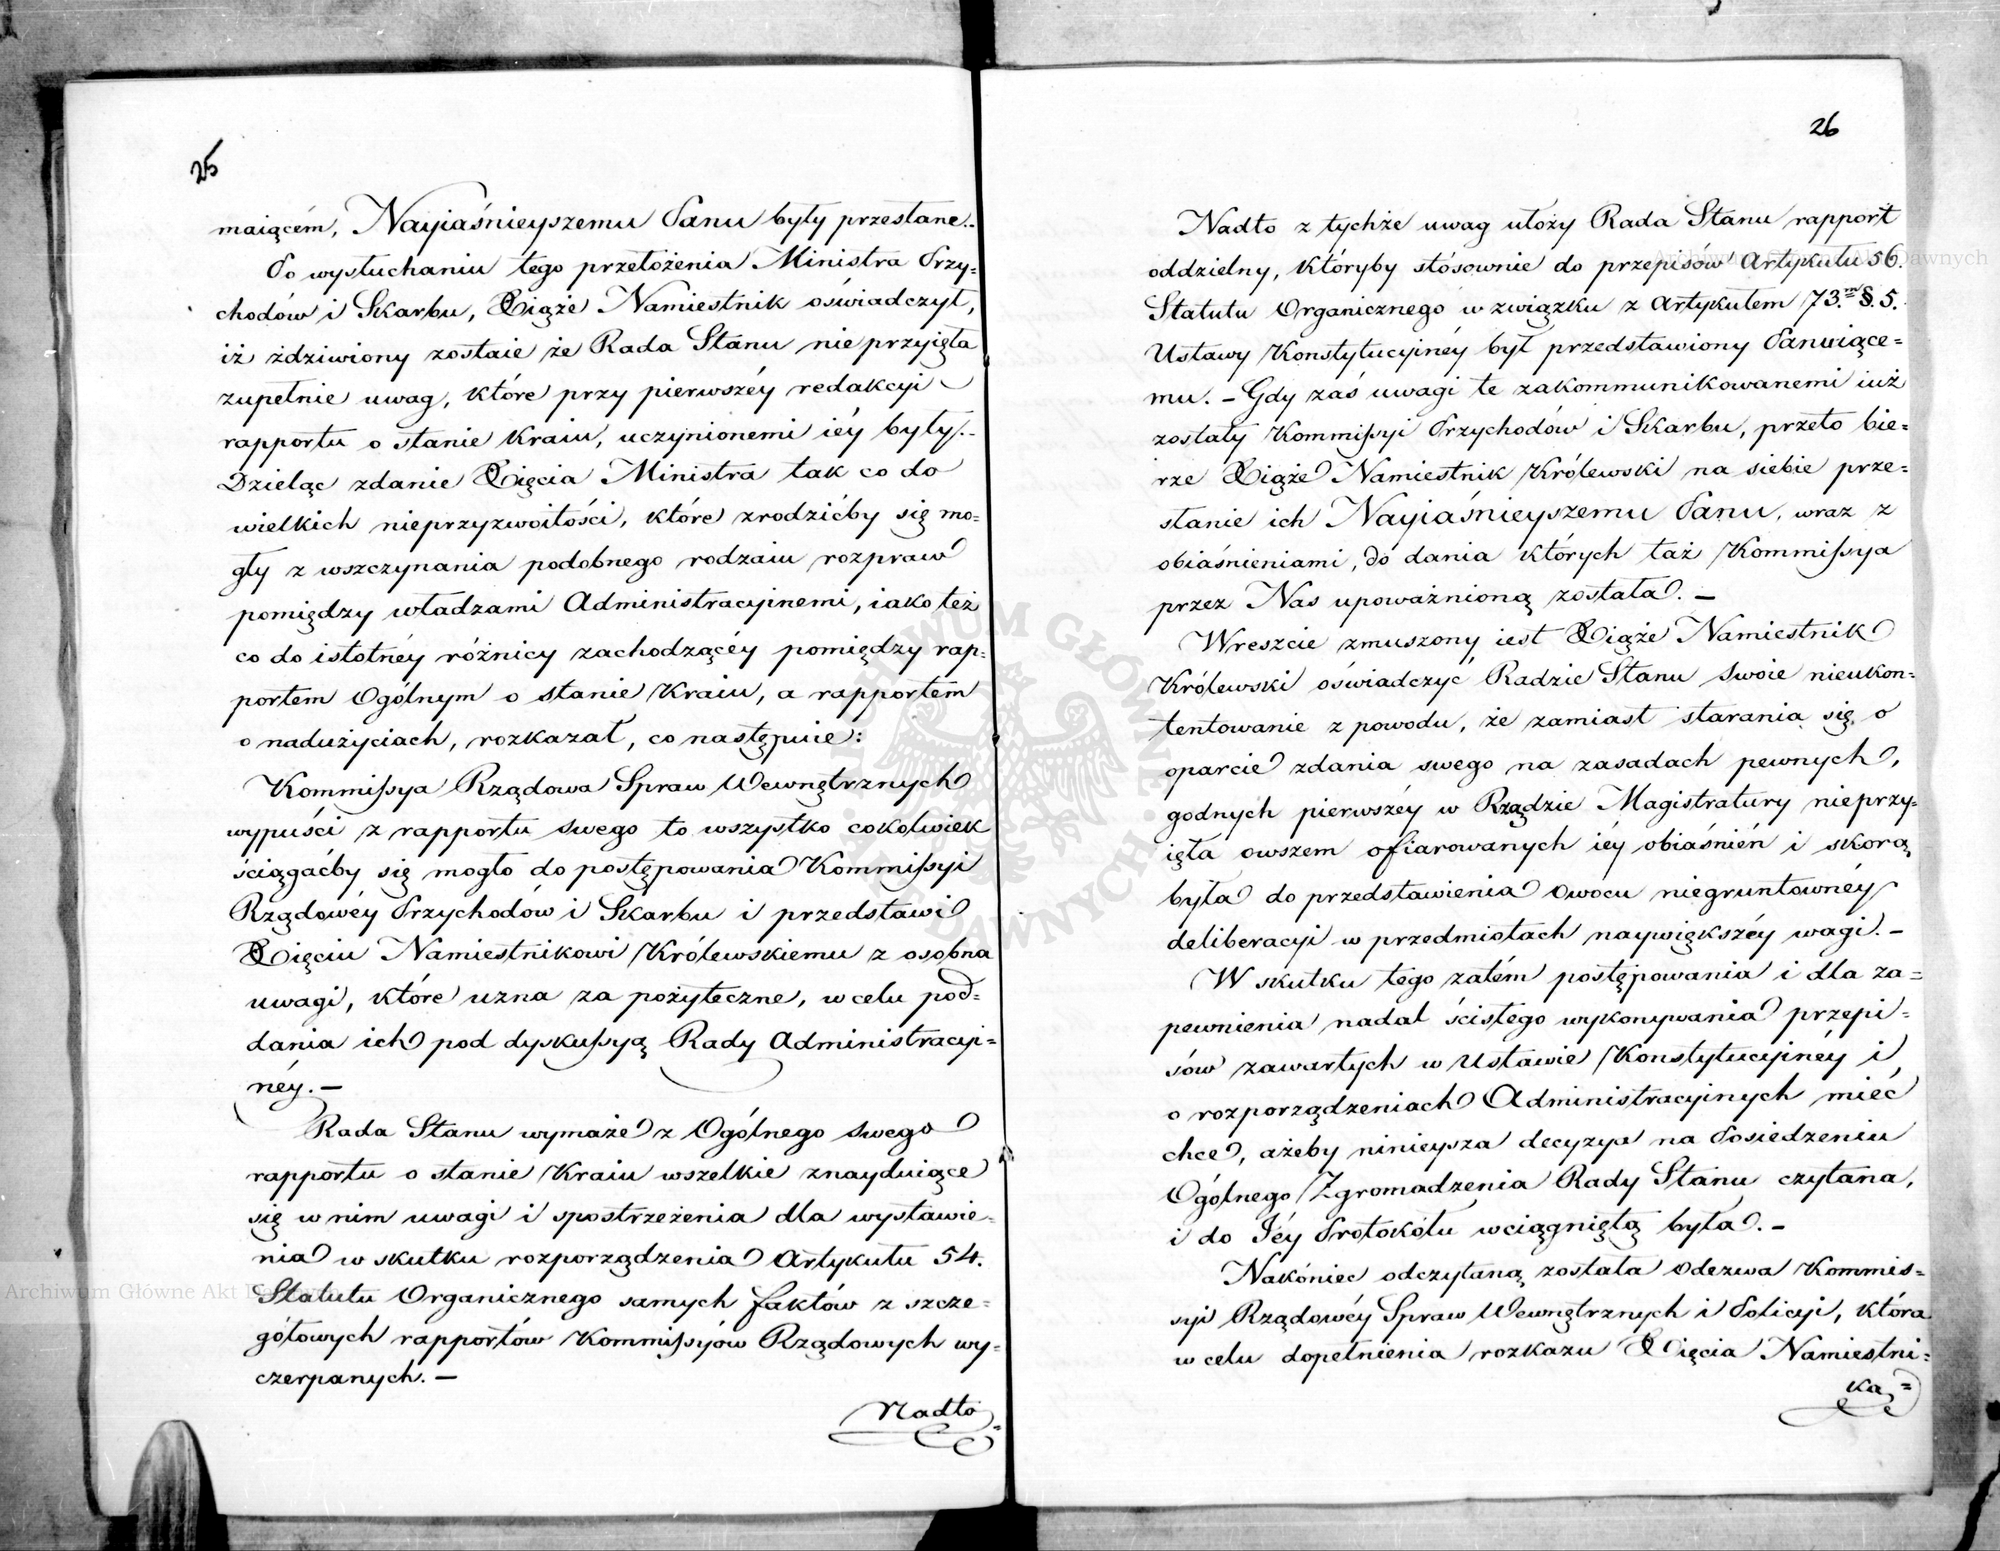 25
maiącém, Nayiaśnieyszemu Panu były przesłane.-
Po wysłuchaniu tego przełożenia Ministra Przy=
chodów i Skarbu, Xiąże Namiestnik oświadczył,
iż zdziwiony zostaie że Rada Stanu nie przyięła
zupełnie uwag, które przy pierwszéy redakcyi
rapportu o stanie Kraiu, uczynionemi iéy były.-
Dzieląc zdanie Xięcia Ministra tak co do
wielkich nieprzyzwoitości, które zrodzićby się mo=
gły z wszczynania podobnego rodzaiu rozpraw
pomiędzy władzami Administracyinemi, iako też
co do istotnéy różnicy zachodzącéy pomiędzy rap=
portem Ogólnym o stanie Kraiu, a rapportem
o nadużyciach, rozkazał, co następuie:
Kommissya Rządowa Spraw Wewnętrznych
wypuści z rapportu swego to wszystko cokolwiek
ściągaćby się mogło do postępowania Kommissyi
Rządowéy Przychodów i Skarbu i przedstawi
Xięciu Namiestnikowi Królewskiemu z osobna
uwagi, które uzna za pożyteczne, w celu pod=
dania ich pod dyskussyą Rady Administracyi=
néy. —
Rada Stanu wymaże z Ogólnego swego
rapportu o stanie Kraiu wszelkie znayduiące
się w nim uwagi i spostrzeżenia dla wystawie=
nia w skutku rozporządzenia Artykułu 54.
Statutu Organicznego samych faktów z szcze=
gółowych rapportów Kommissyów Rządowych wy=
czerpanych. —
Nadto
26
Nadto z tychże uwag ułoży Rada Stanu rapport
oddzielny, któryby stósownie do przepisów Artykułu 56.
Statutu Organicznego w związku z Artykułem 73.m §. 5.
Ustawy Konstytucyinéy był przedstawiony Panuiące=
mu. — Gdy zaś uwagi te zakommunikowanemi iuż
zostały Kommissyi Przychodów i Skarbu, przeto bie=
rze Xiąże Namiestnik Królewski na siebie prze=
słanie ich Nayiaśnieyszemu Panu, wraz z
obiaśnieniami, do dania których taż Kommissya
przez Nas upoważnioną została. —
Wreszcie zmuszony iest Xiąże Namiestnik
Królewski oświadczyć Radzie Stanu swoie nieukon=
tentowanie z powodu, że zamiast starania się o
oparcie zdania swego na zasadach pewnych,
godnych pierwszéy w Rządzie Magistratury nieprzy=
ięła owszem ofiarowanych iéy obiaśnień i skorą
była do przedstawienia owocu niegruntownéy
deliberacyi w przedmiotach naywiększéy wagi. —
W skutku tego zatém postępowania i dla za=
pewnienia nadal ścisłego wykonywania przepi=
sów zawartych w Ustawie Konstytucyinéy i
o rozporządzeniach Administracyinych mieć
chce, ażeby ninieysza decyzya na Posiedzeniu
Ogólnego Zgromadzenia Rady Stanu czytana,
i do Iéy Protokółu wciągniętą była. —
Nakóniec odczytaną została Odezwa Kommis=
syi Rządowéy Spraw Wewnętrznych i Policyi, która
w celu dopełnienia rozkazu Xięcia Namiestni=
ka=
Archiwum Główne Akt Dawnych
Archiwum Główne Akt Dawnych
ARCHIWUM GŁÓWNE AKT DAWNYCH